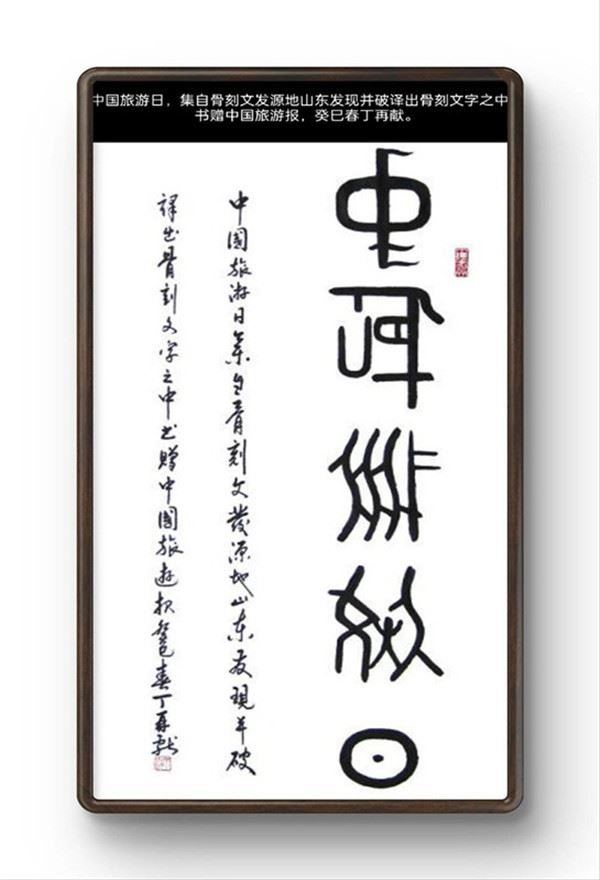 中国旅游日，集自骨刻文发源地山东发现并破译出骨刻文字之中
书赠中国旅游报，癸巳春丁再献。
中国旅游日
中國旅游日集自骨刻文發源地山东发現并破
譯出骨刻文字之中书贈中國旅遊报癸巳春丁再献